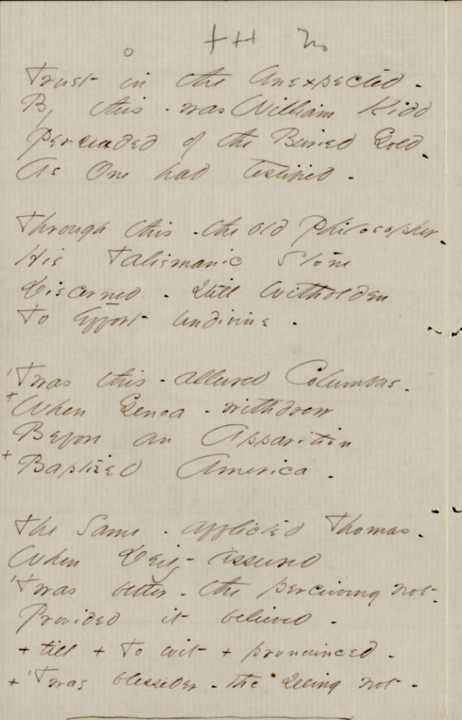 o ++ H
Trust in the Unexpected -
By this - was William Kidd
Persuaded of the Buried Gold -
As One had testified -
Through this - the old Philosopher -
His Talismanic Stone
Discerned - still witholden
To effort undivine -
'Twas this - allured Columbus -
+ When Genoa - withdrew
Before an Apparition
+ Baptized America -
The Same - afflicted Thomas -
When Deity assured
'Twas better - the perceiving not -
Provided it believed -
+ till + To wit + pronounced -
+ 'Twas blesseder - the seeing not -